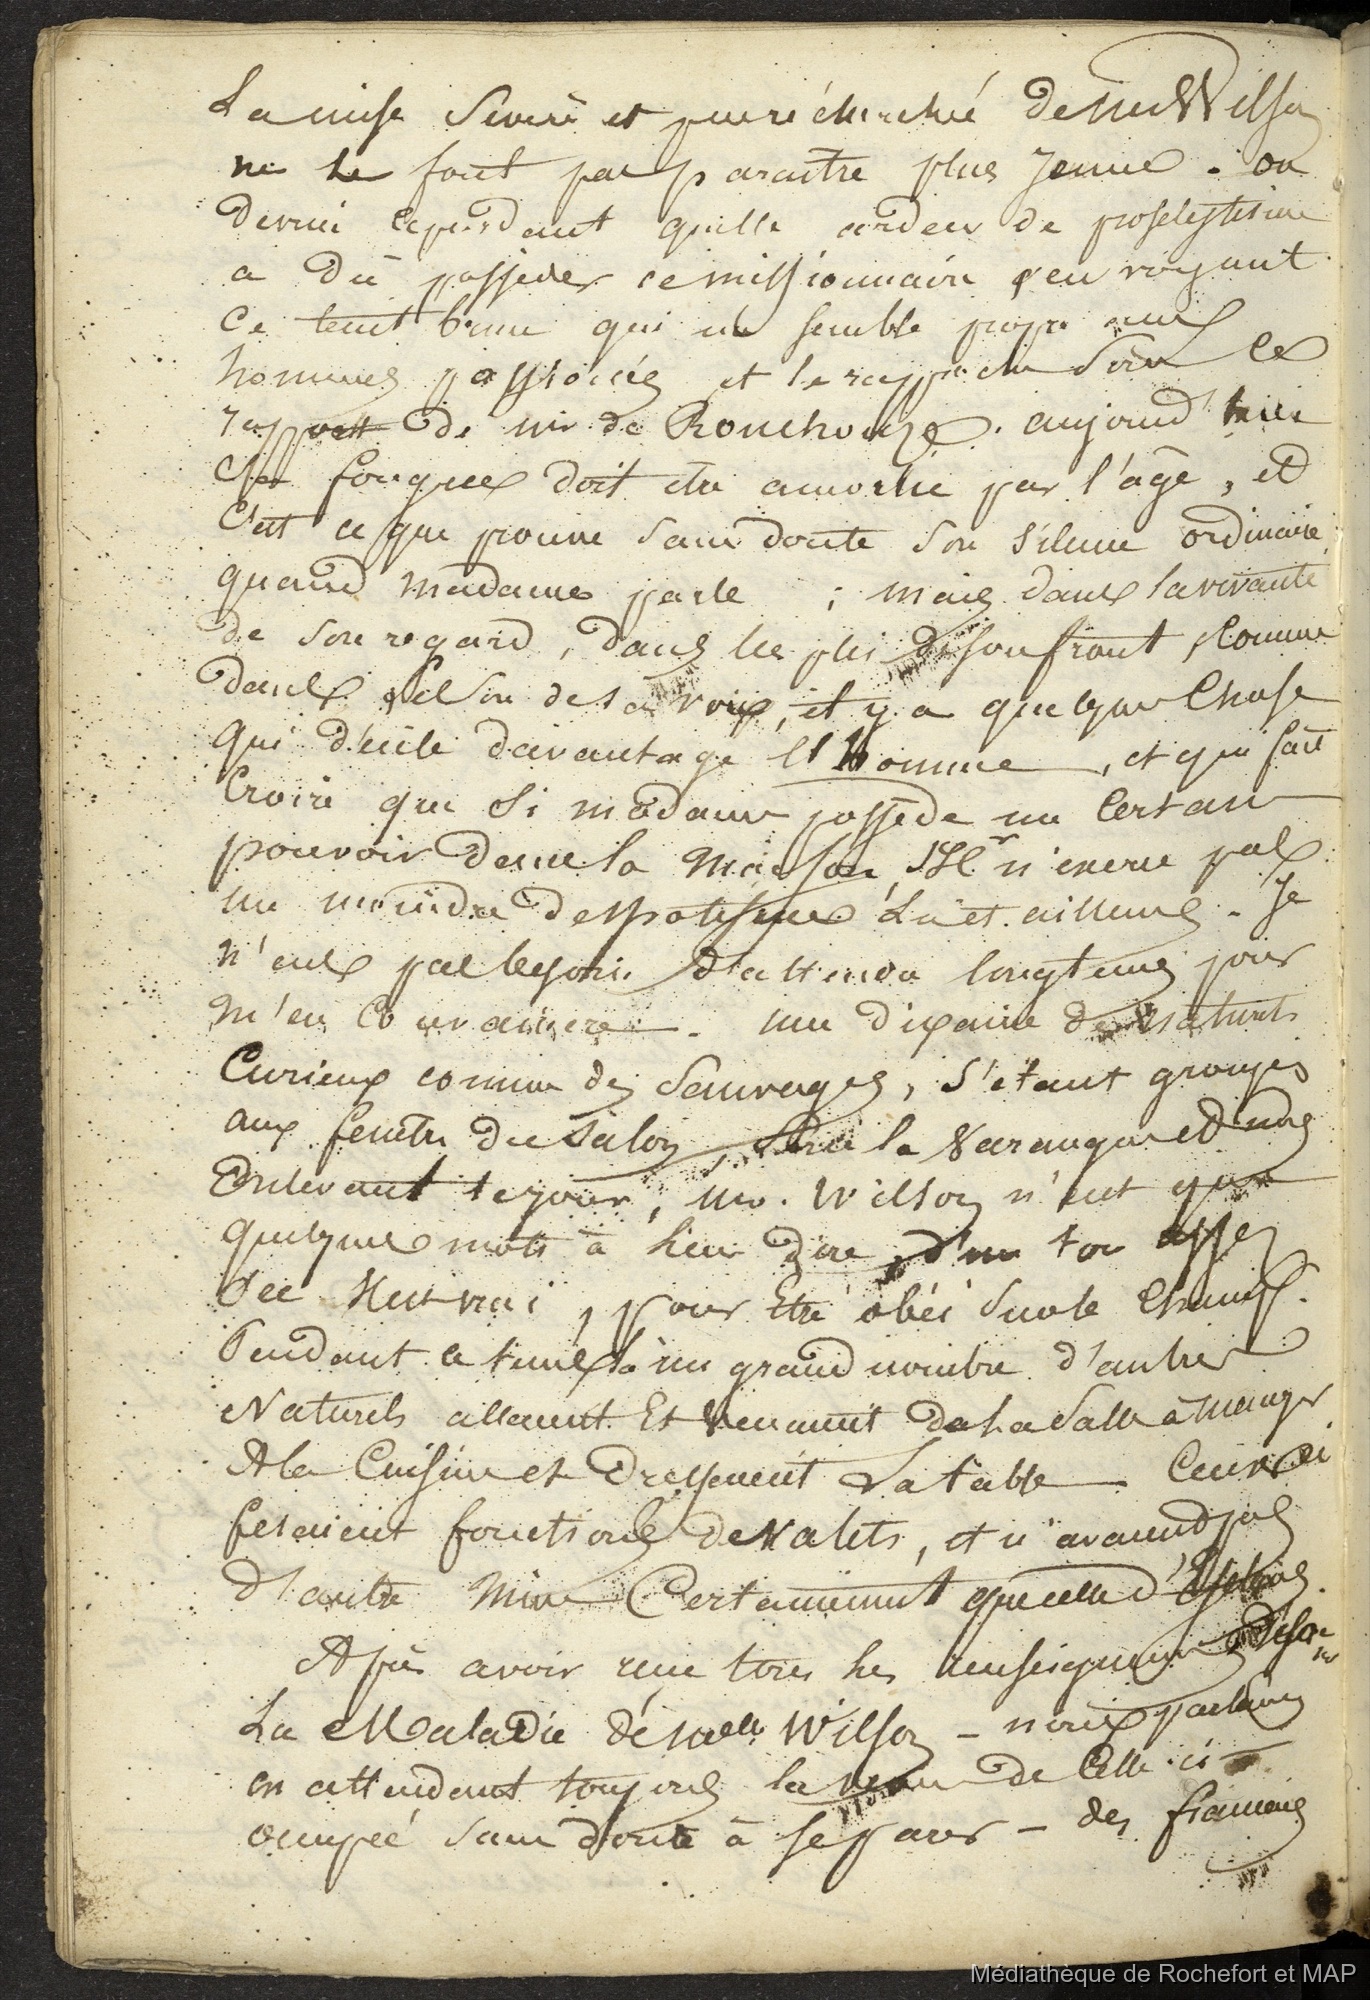 La mise severe et peu réchérchée de mr Wilson
ne le font pas paraitre plus jeune. on
devine cependant quelle ardeur de proselytisme
a dû posseder ce missionnaire en voyant
ce teint brun qui me semble propre aux
hommes passionnés et le rapproche sous ce
rapport de mr de Rouchouze. aujourd'hui
cette fougue doit être amortie par l'âge, et
c'est ce que prouve sans doute son silence ordinaire
quand madame parle ; mais dans la vivacité
de son regard, dans les plis de son front, comme
dans le son de sa voix, il y a quelque chose
qui décéle davantage l'homme, et qui fait
croire que si madame possède un certain
pouvoir dans la maison, Mr n'exerce pas
un moindre despotisme là et ailleurs. Je
n'eus pas besoin d'attendre longtems pour
m'en convaincre. une dixaine de naturels
curieux comme des sauvages, s'étant groupés
aux fenêtres du salon, sous la varangue et nous
enlevant le jour, Mr. Wilson n'eut que
quelques mots à leur dire, d'un ton assez
sec il est vrai, pour être obéi sur le champ.
Pendant ce tems là un grand nombre d'autres
Naturels allaient Et venaient de la salle à manger
à la Cuisine et dressaient la table. Ceux ci
fesaient fonctions de valets, et n'avaient pas
d'autre mine certainement que celle d'Esclaves.
Après avoir reçu tous les renseignemens
La Maladie de melle Wilson - nous parlâmes
en attendant toujours la venue de celle-ci
occupée sans doute à se parer - des français
Médiathèque de Rochefort et MAP